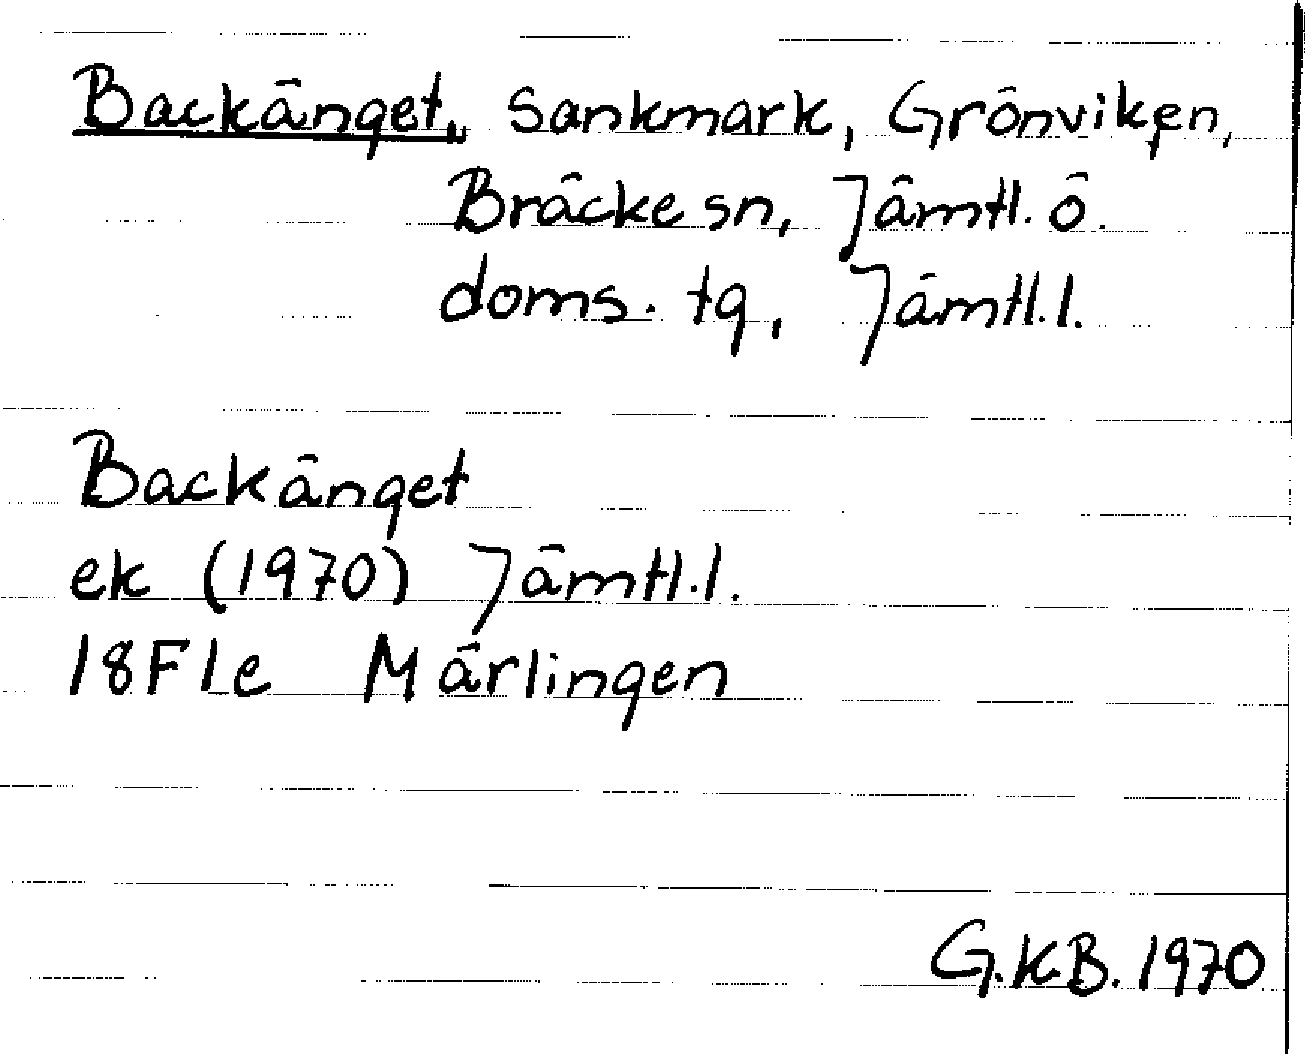 Backänget, Sankmark, Grönviken,
Bräcke sn, Jämtl. ö.
doms. tg, Jämtl.l.
Backänget
ek (1970) Jämtl.l.
18F1e Märlingen
G.K.B. 1970